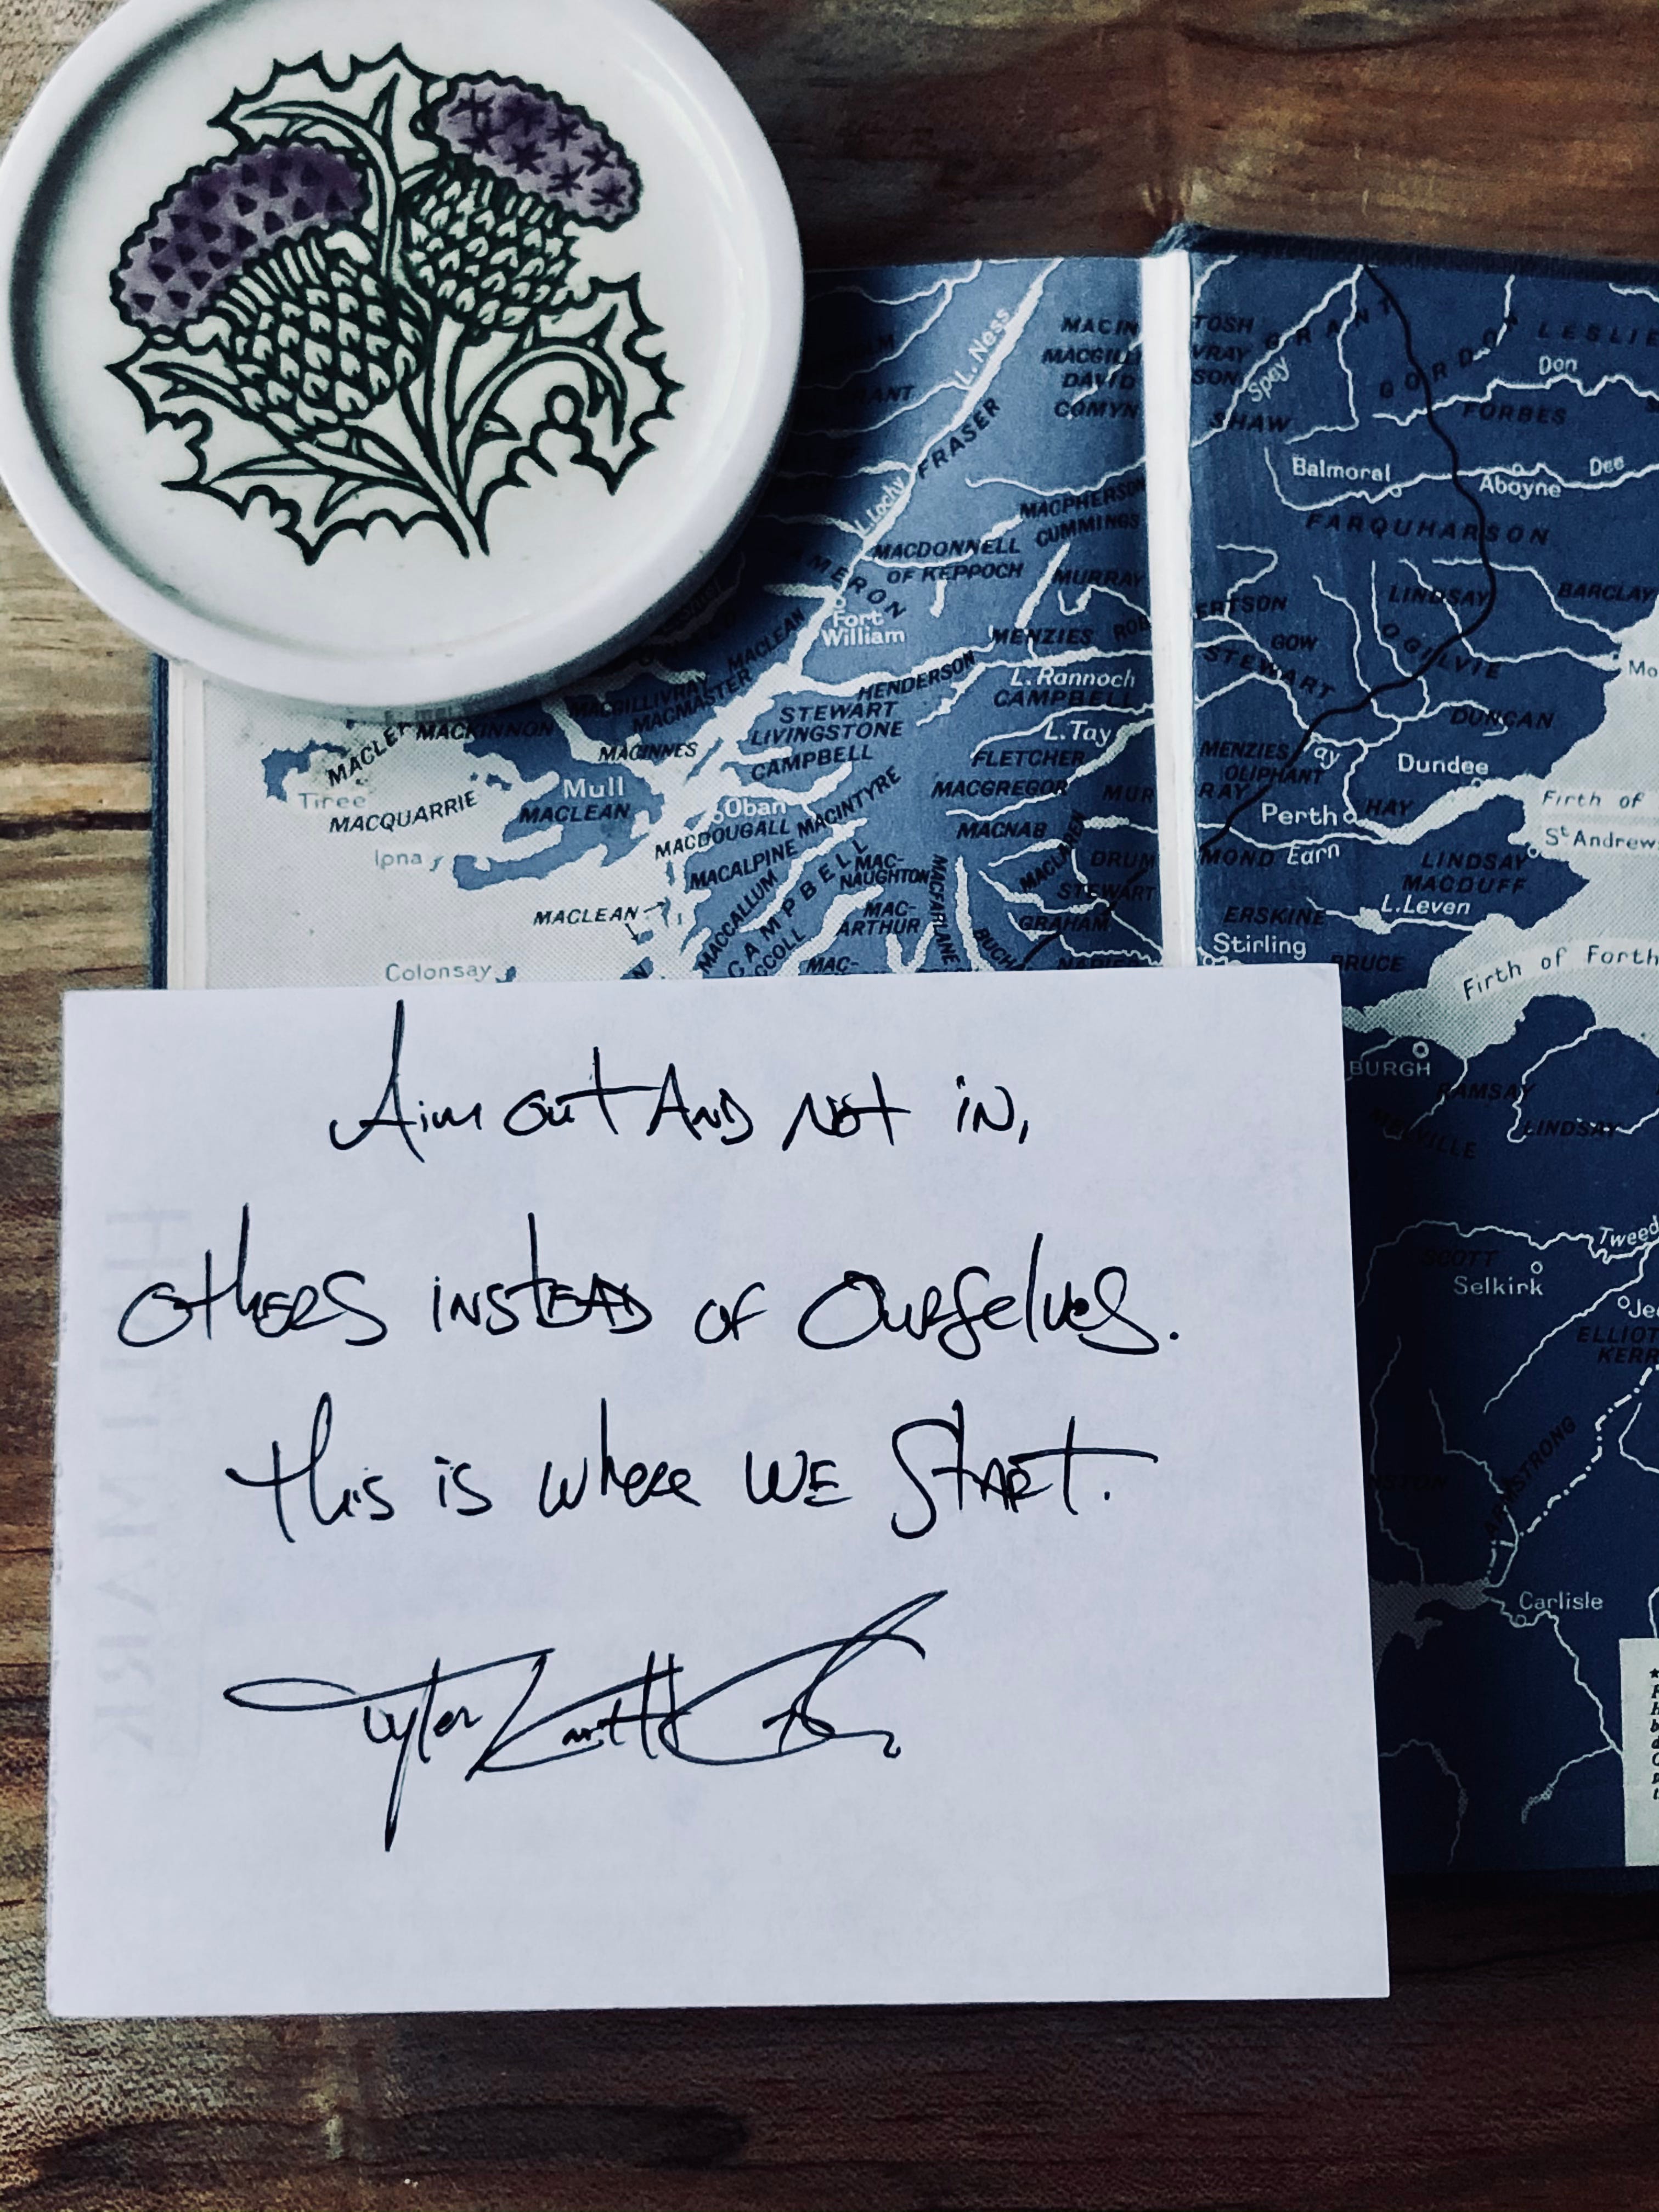 L. Ness
MACIN TOSH
MACGILL VRAY
DAVID SON
COMYN
GRANT
GORDON
LESLIE
Don
Spey
SHAW
FORBES
ANT
FRASER
L. Lochy
Balmoral
Aboyne
Dee
MACPHERSON
CUMMINGS
FARQUHARSON
MACDONNELL
OF KEPPOCH
MERON
MURRAY
LINDSAY
BARCLAY
Fort
William
MENZIES
ROB ERTSON
GOW
STEWART
OGILVIE
MACLEAN
HENDERSON
L. Rannoch
CAMPBELL
MACGILLIVRAY
MACMASTER
STEWART
LIVINGSTONE
CAMPBELL
L. Tay
DUNCAN
MACKINNON
MACINNES
FLETCHER
MENZIES
Tay
OLIPHANT
Dundee
MACLE
Tiree
Mull
MACLEAN
MACQUARRIE
Oban
MACINTYRE
MACGREGOR
MUR RAY
Perth
HAY
Firth of
St Andrew
MACDOUGALL
MACNAB
MACLAREN
Iona
MACALPINE
CAMPBELL
MAC-
NAUGHTON
DRUM MOND
Earn
LINDSAY
MACDUFF
MACFARLANE
STEWART
MACLEAN
MACCALLUM
MAC-
ARTHUR
GRAHAM
ERSKINE
L. Leven
Stirling
BRUCE
Firth of Forth
Colonsay
CCOLL
MAC-
BUCH
NAPIER
BURGH
RAMSAY
MELVILLE
LINDSAY
Tweed
SCOTT
Selkirk
Je
ELLIOT
KERR
ARMSTRONG
Carlisle
Aim out And not in,
others instead of ourselves.
this is where we start.
Tyler Knott
HALLMARK